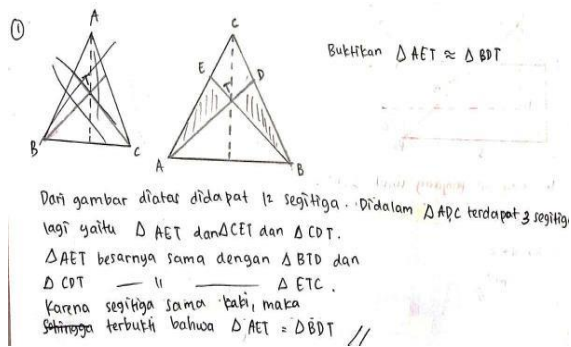 ①
A
T
B
C
C
E
D
T
A
B
Buktikan △AET ≈ △BDT
Dari gambar diatas didapat 12 segitiga. Didalam △ADC terdapat 3 segitiga
lagi yaitu △ AET dan △CET dan △ CDT.
△AET besarnya sama dengan △BTD dan
△ CDT — 11 — △ ETC.
Karena segitiga sama kaki, maka
sehingga terbukti bahwa △ AET = △BDT //